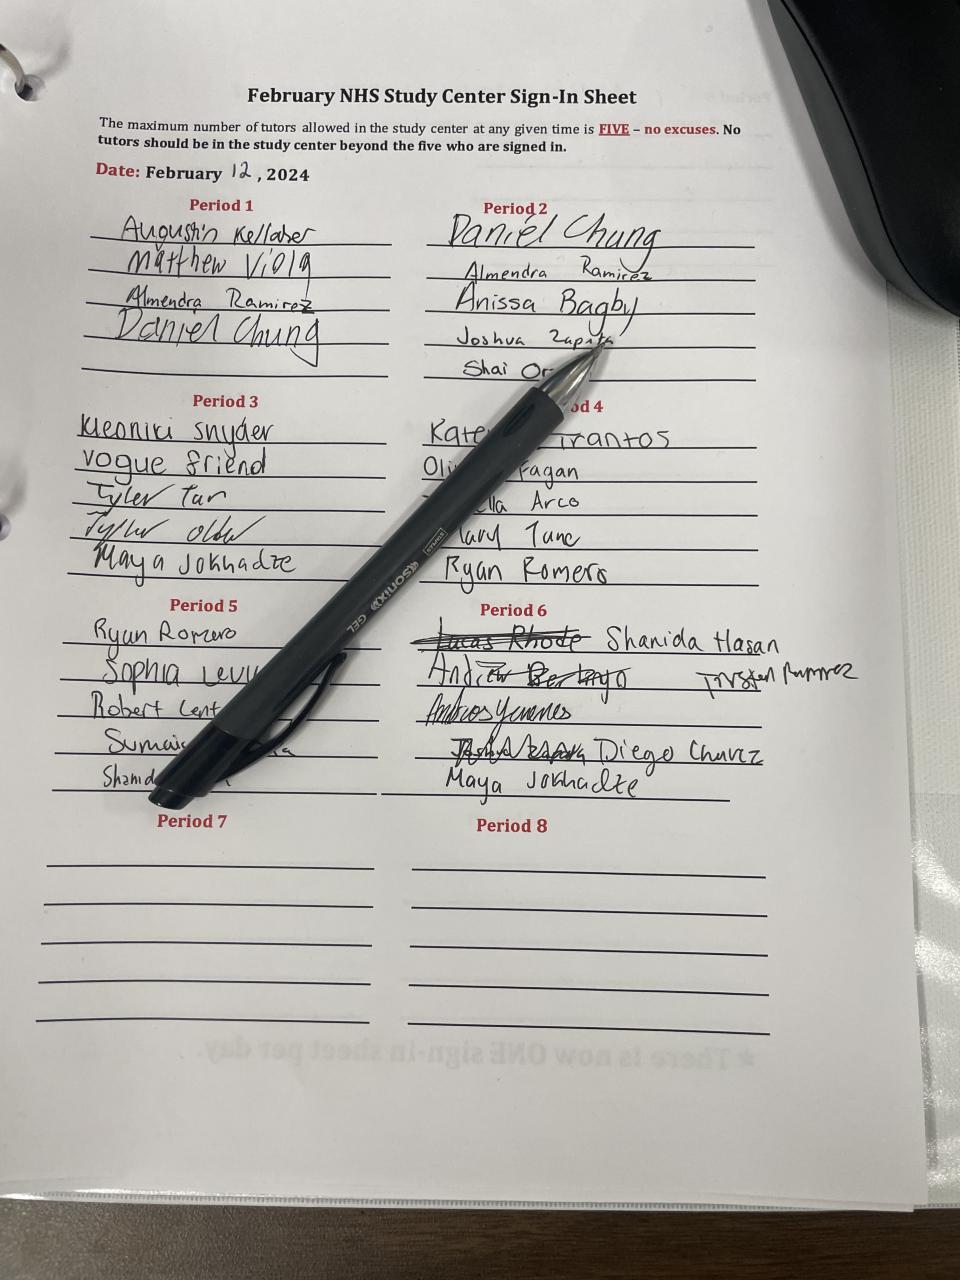 February NHS Study Center Sign-In Sheet
The maximum number of tutors allowed in the study center at any given time is FIVE – no excuses. No
tutors should be in the study center beyond the five who are signed in.
Date: February 12, 2024
Period 1
Augustin Kellaher
Matthew Viola
Almendra Ramirez
Daniel Chung
Period 2
Daniel Chung
Almendra Ramirez
Anissa Bagby
Joshua
Shai
Period 3
Kleoniki Snyder
Vogue Friend
Tyler Tan
Tyler
Maya Jokhadze
Period 4
Fagan
Arco
Ryan Romero
Period 5
Ryan Romero
Sophia
Robert
Period 6
Lucas Rhode Shanida Hasan
Diego Chavez
Maya Jokhadze
Period 7
Period 8
SONIX GEL
STAPLES
★ There is now ONE sign-in sheet per day.